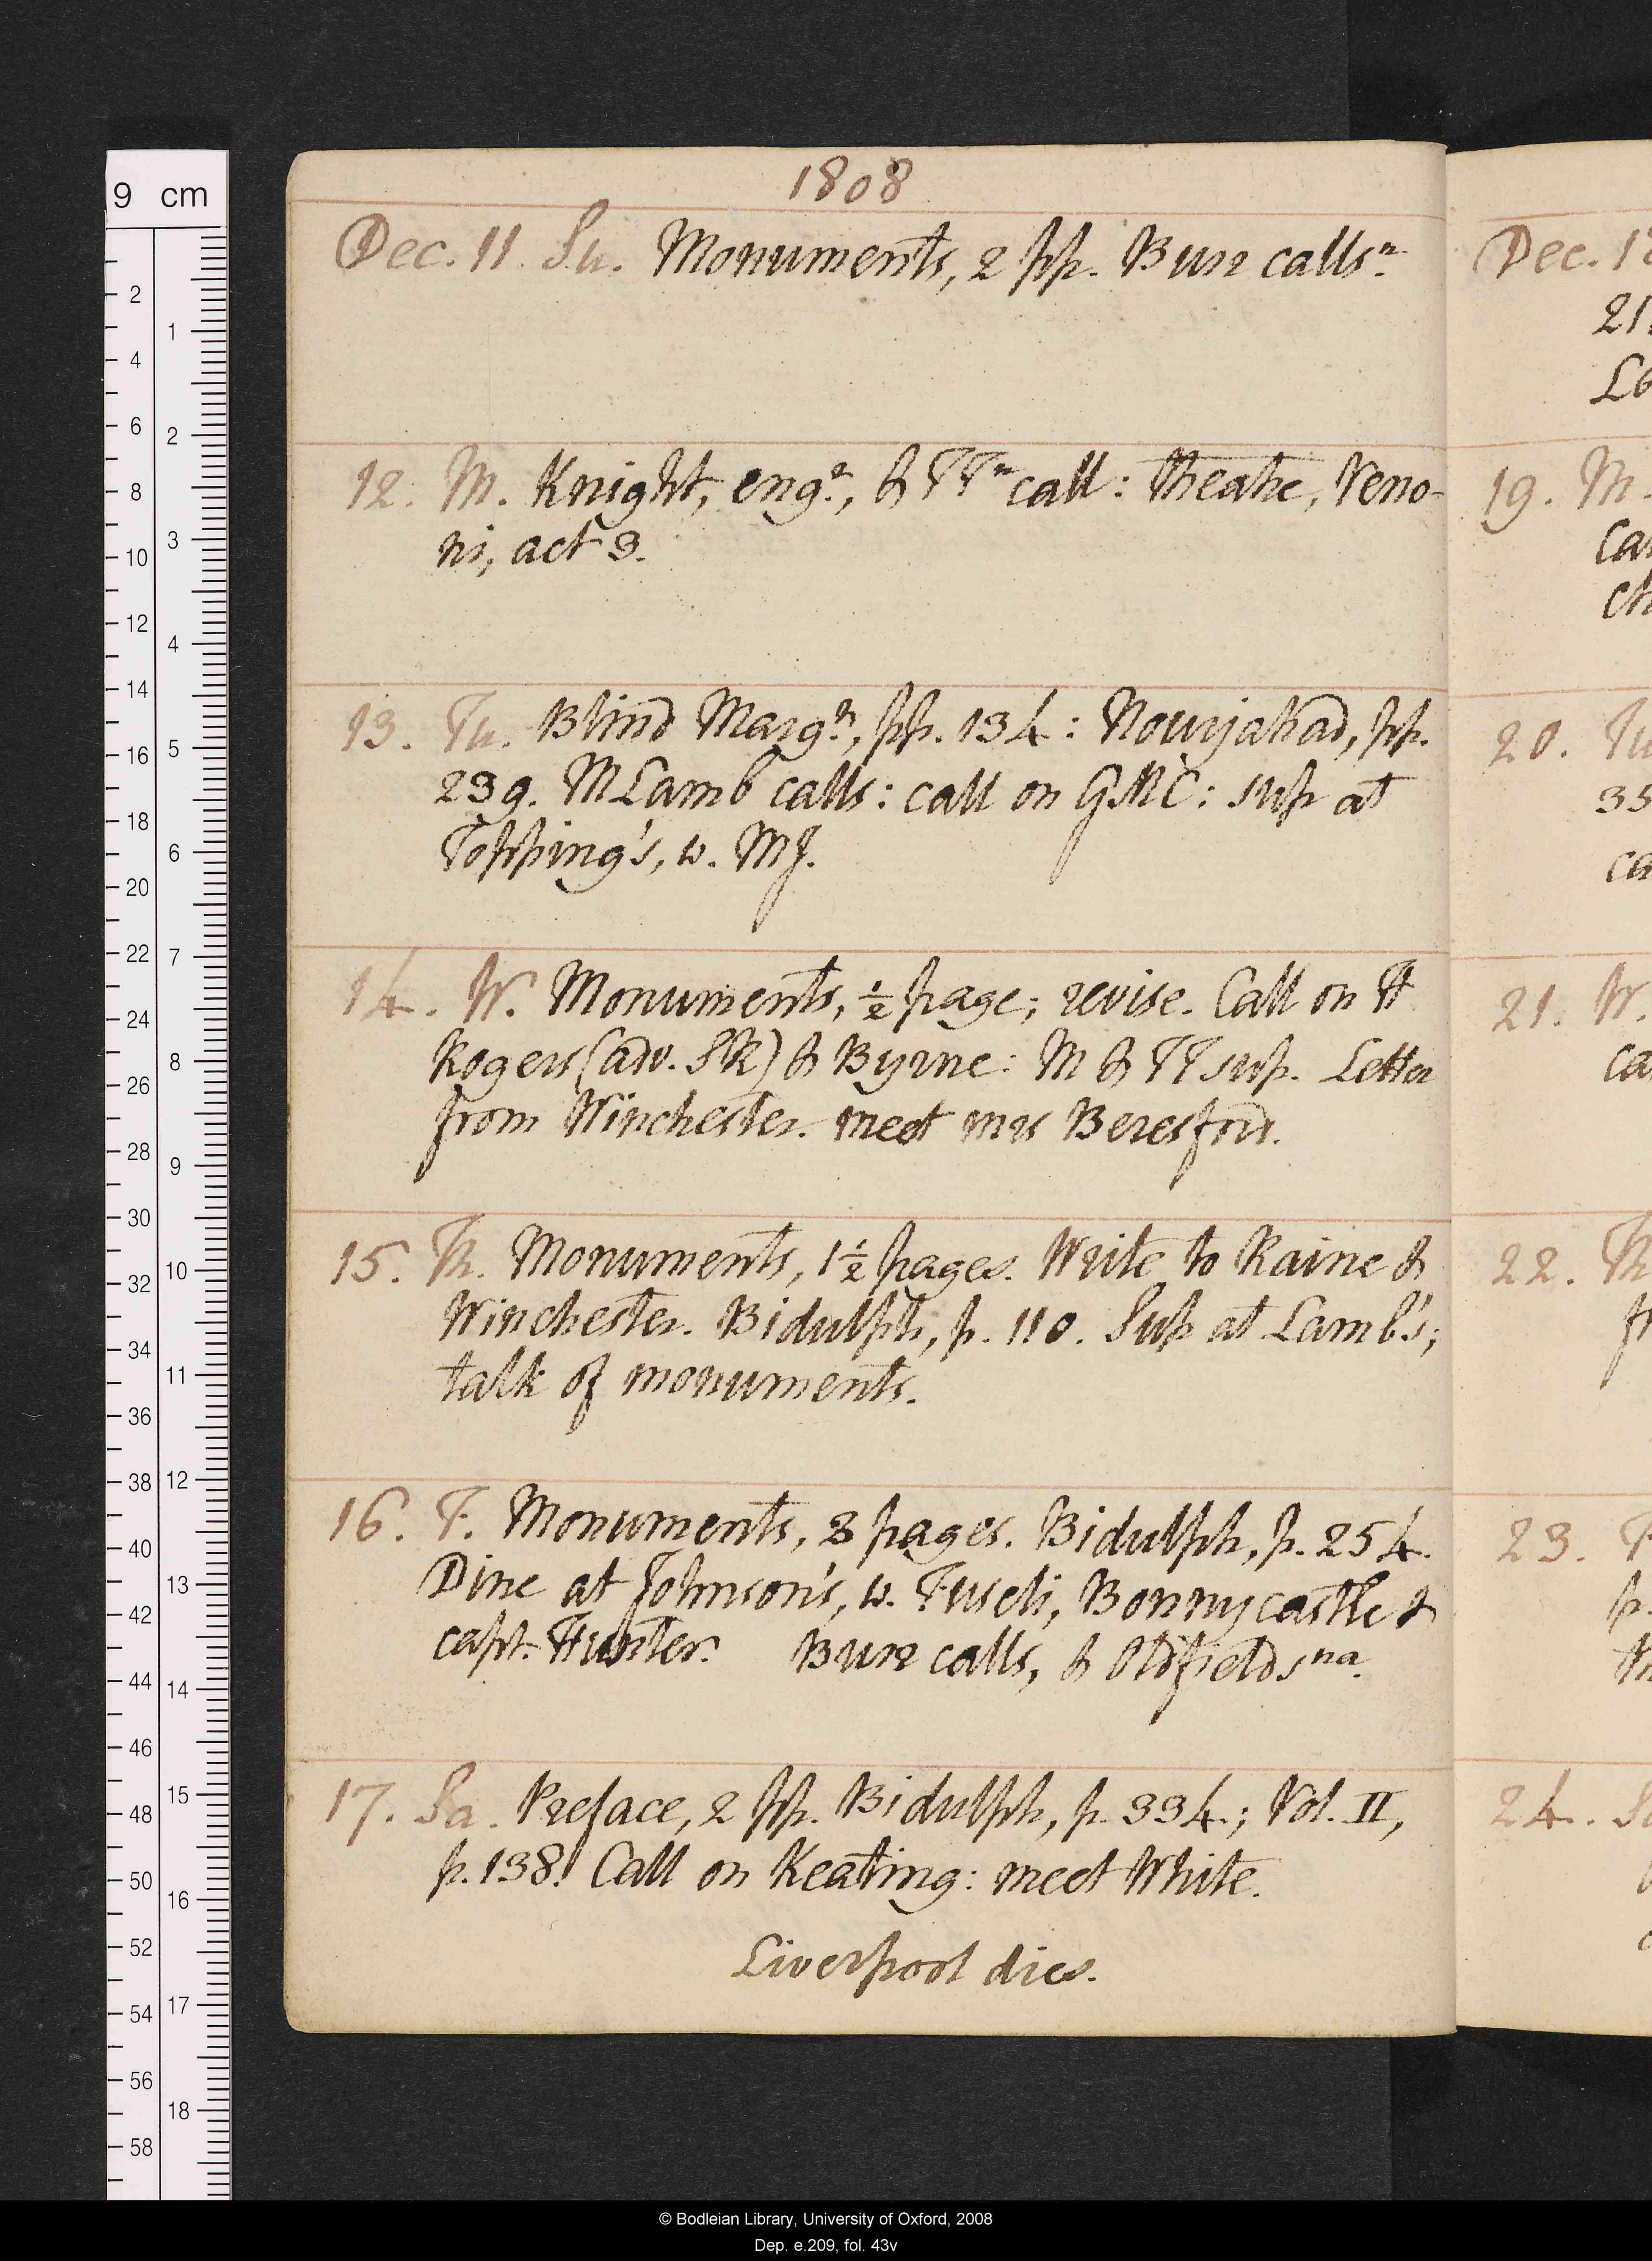 1808
Dec. 11. Su. Monuments, 2 pp. Burr calls n.
12. M. Knight, engr., & TTn call: theatre, Veno-
ni, act 3.
13. Tu. Blind Margn, pp. 134: Nourjahad, pp.
239. MLamb calls: call on GMC: sup at
Topping's, w. MJ.
14. W. Monuments, ½ page; revise. Call on H
Rogers (adv. SR) & Byrne: M & TT sup. Letter
from Winchester. meet mrs Beresford.
15. Th. Monuments, 1½ pages. Write to Raine &
Winchester. Bidulph, p. 110. Sup at Lamb's;
talk of monuments.
16. F. Monuments, 3 pages. Bidulph, p. 254.
Dine at Johnson's, w. Fuseli, Bonnycastle &
capt. Hunter. Burr calls, & Oldfields na.
17. Sa. Preface, 2 pp. Bidulph, p. 334; Vol. II,
p. 138. Call on Keating: meet White.
Liverpool dies.
Dec. 18
21
19. M.
20. Tu
35
ca
21. W.
ca
22. Th
fr
23. F
p.
24. Sa
9 cm
2
4
6
8
10
12
14
16
18
20
22
24
26
28
30
32
34
36
38
40
42
44
46
48
50
52
54
56
58
1
2
3
4
5
6
7
8
9
10
11
12
13
14
15
16
17
18
© Bodleian Library, University of Oxford, 2008
Dep. e.209, fol. 43v